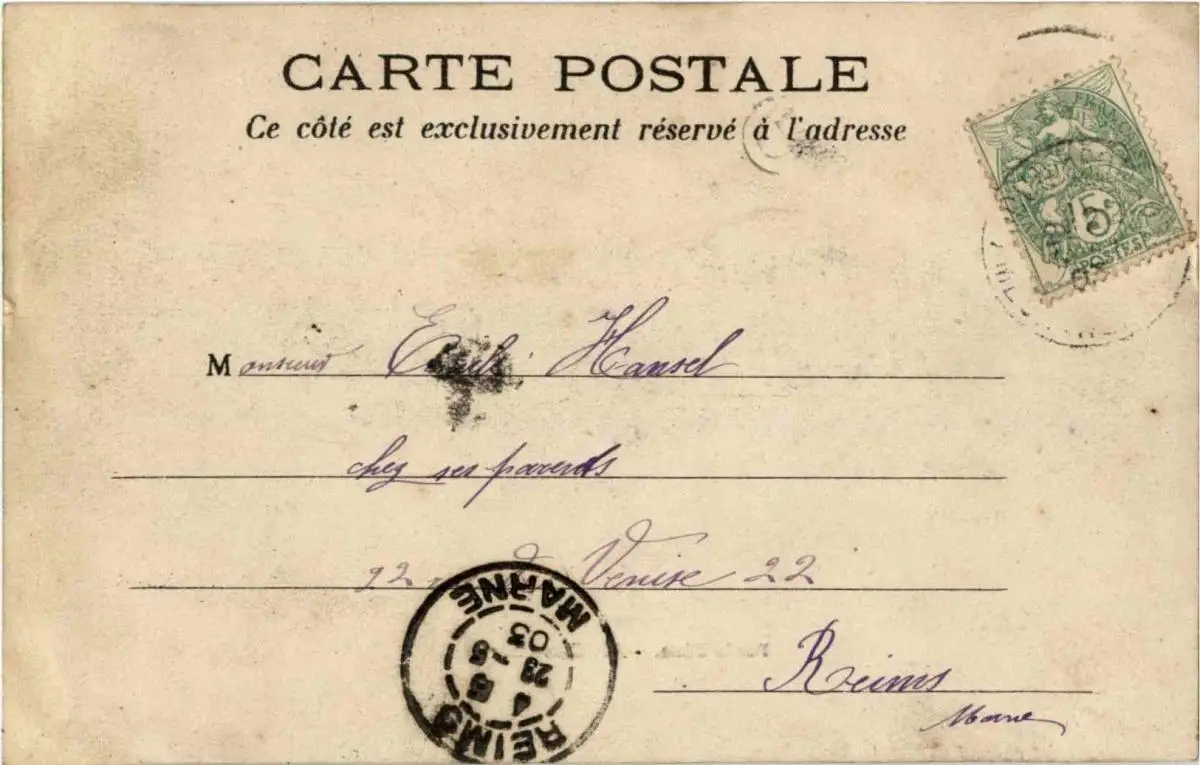 CARTE POSTALE
Ce côté est exclusivement réservé à l'adresse
FRANÇAISE
5
POSTES
Monsieur Hansel
chez ses parents
de Venise 22
Reims
Marne
REIMS
MARNE
4
23 - 5
03